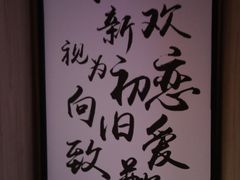 欢恋爱
新初旧
视为向致